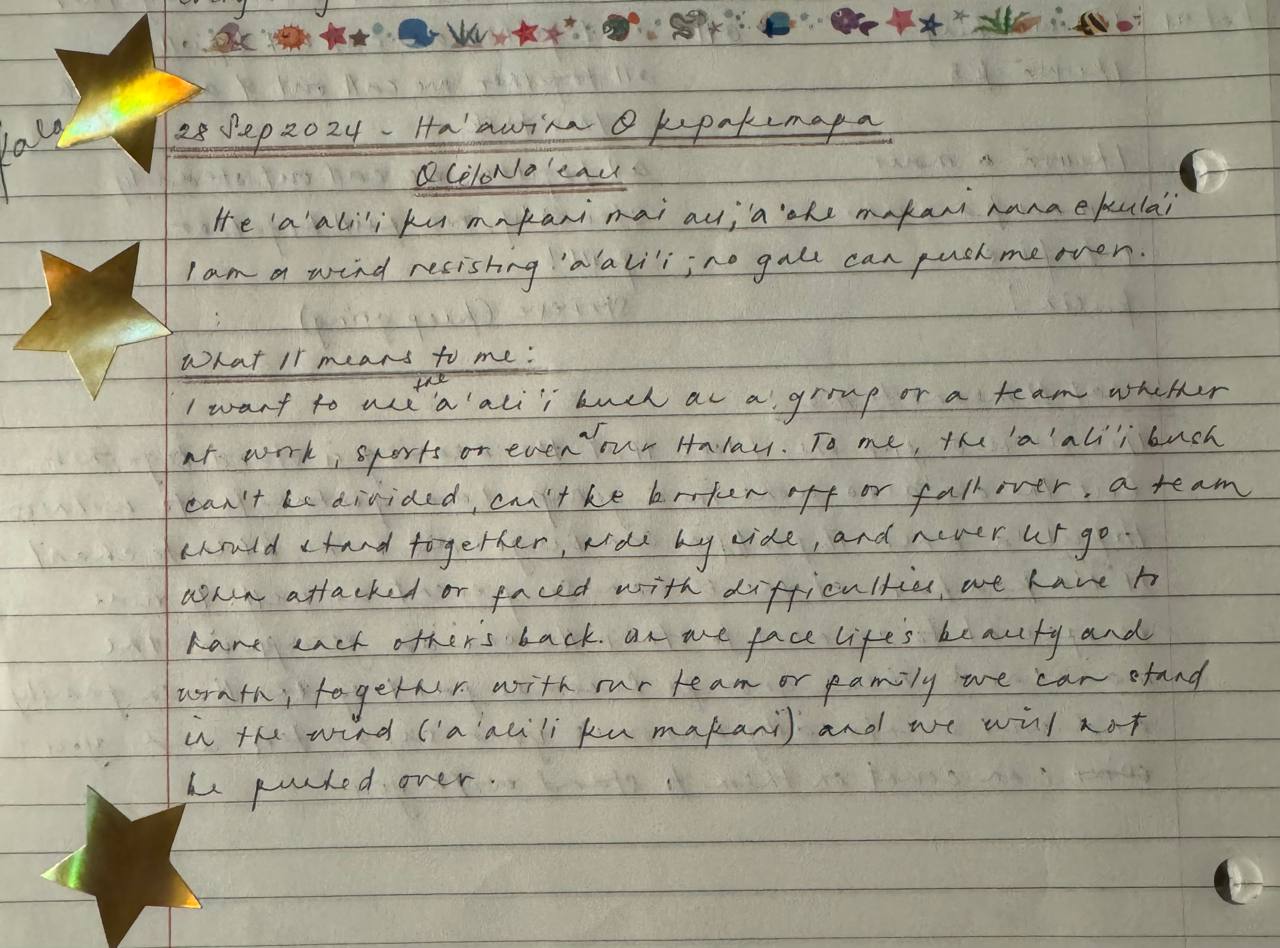 28 Sep 2024 - Ha'awina O Kepakemapa
Olelo No'eau
He 'a'ali'i ku makani mai au; 'a'ohe makani nana e kula'i
I am a wind resisting 'a'ali'i; no gale can push me over.
What it means to me:
I want to use the 'a'ali'i bush as a group or a team whether
at work, sports or even at our Halau. To me, the 'a'ali'i bush
can't be divided, can't be broken off or fall over. a team
should stand together, side by side, and never let go.
When attacked or faced with difficulties, we have to
have each other's back. as we face life's beauty and
wrath, together with our team or family we can stand
in the wind ('a'ali'i ku makani) and we will not
be pushed over.